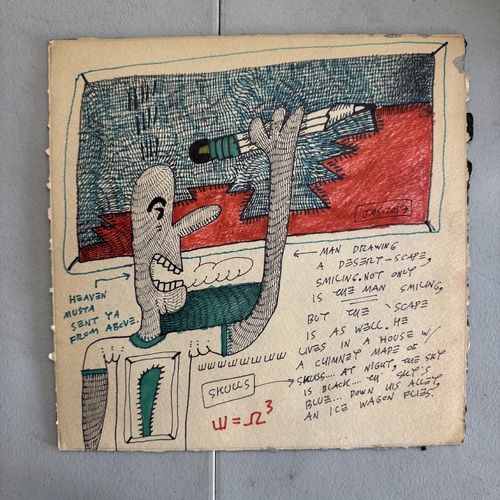 MAN DRAWING
A DESERT-SCAPE,
SMILING. NOT ONLY
IS THE MAN SMILING,
BUT THE 'SCAPE
IS AS WELL. HE
LIVES IN A HOUSE W/
A CHIMNEY MADE OF
SKULLS.... AT NIGHT, THE SKY
IS BLACK.... THE SKY'S
BLUE... DOWN HIS ALLEY,
AN ICE WAGON FLIES.
HEAVEN
MUSTA
SENT YA
FROM ABOVE.
SKULLS
Ш = Ω³